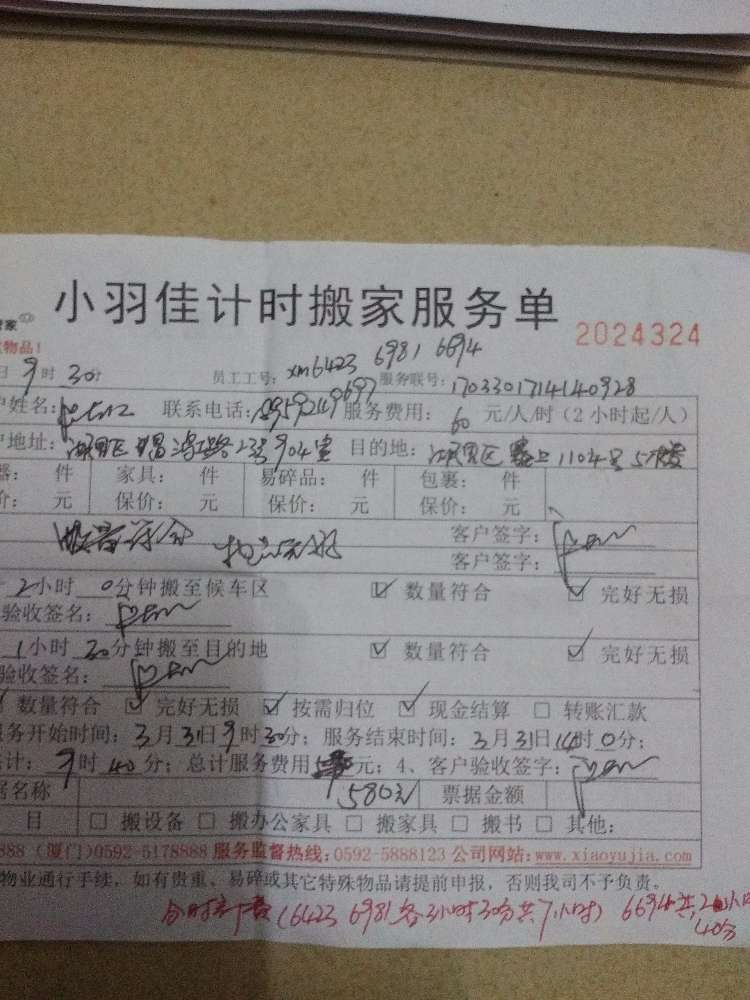 小羽佳计时搬家服务单
2024324
物品!
日 9 时 30分 员工工号: xm6423 6981 6694 服务联号: 1703301714140928
户姓名: 联系电话: 服务费用: 60 元/人/时 (2小时起/人)
户地址: 湖里区 2号904室 目的地: 湖里区 上1104号
器: 件 家具: 件 易碎品: 件 包裹: 件
价: 元 保价: 元 保价: 元 保价: 元
客户签字:
客户签字:
2小时 0分钟搬至候车区 ☑ 数量符合 ☑ 完好无损
验收签名:
1小时 30分钟搬至目的地 ☑ 数量符合 ☑ 完好无损
验收签名:
数量符合 ☑ 完好无损 ☑ 按需归位 ☑ 现金结算 □ 转账汇款
服务开始时间: 3月31日9时30分; 服务结束时间: 3月31日14时0分;
计: 9时40分; 总计服务费用 元; 4、客户验收签字:
名称 580元 票据金额
目 □ 搬设备 □ 搬办公家具 □ 搬家具 □ 搬书 □ 其他:
888 (厦门)0592-5178888 服务监督热线:0592-5888123 公司网站:www.xiaoyujia.com
物业通行手续, 如有贵重、易碎或其它特殊物品请提前申报, 否则我司不予负责。
(6423 6981各3小时30分共7小时) 6694共2小时
40分